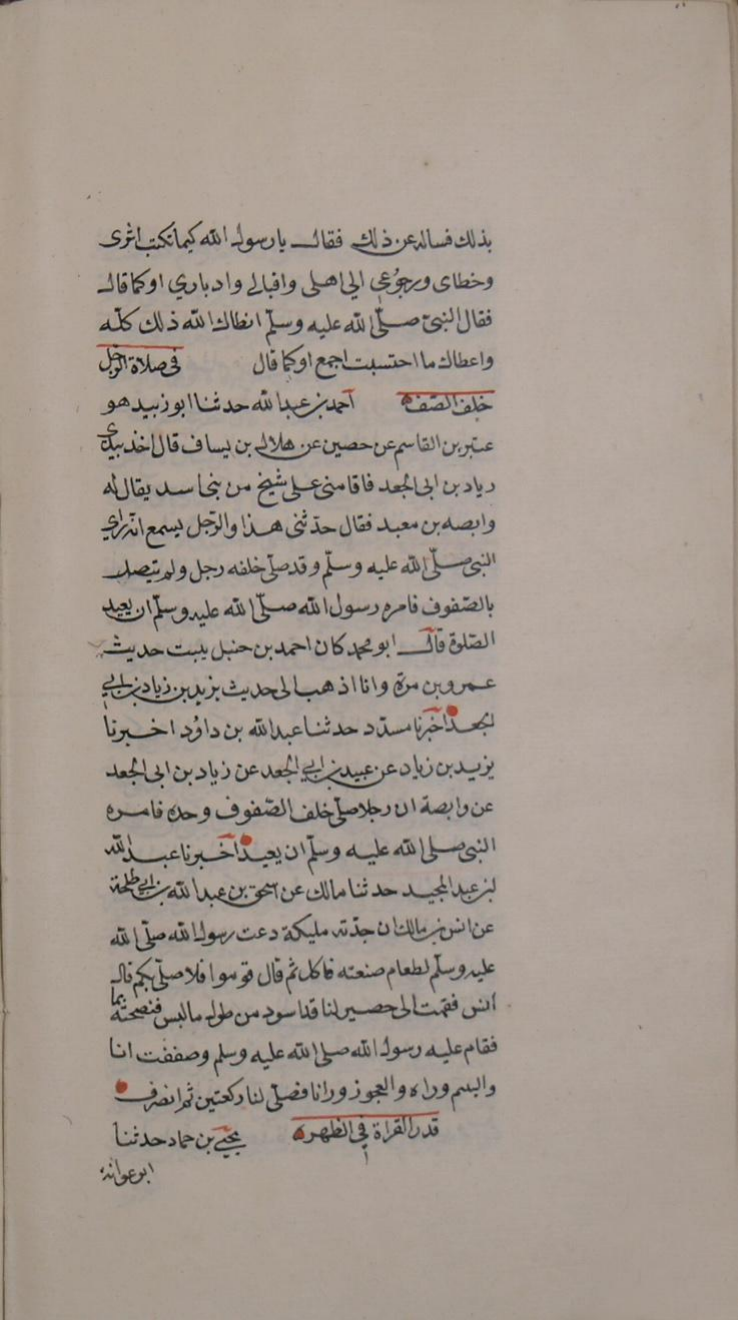 بذلك فساله عن ذلك فقال يا رسول الله كيما تكتب اثرى
وخطاى ورجوعي الي اهلى واقبالي وادباري اوكما قال
فقال النبى صلى الله عليه وسلم انطاك الله ذلك كله
واعطاك ما احتسبت اجمع اوكما قال في صلاة الرجل
خلف الصف احمد بن عبدالله حدثنا ابو زبيد هو
عبثر بن القاسم عن حصين عن هلال بن يساف قال اخذ بيدى
زياد بن ابى الجعد فاقامنى على شيخ من بنى اسد يقال له
وابصه بن معبد فقال حدثنى هذا والرجل يسمع انه راي
النبى صلى الله عليه وسلم وقد صلى خلفه رجل ولم يتصل
بالصفوف فامره رسول الله صلى الله عليه وسلم ان يعيد
الصلوة قال ابو محمد كان احمد بن حنبل يثبت حديث
عمرو بن مرة وانا اذهب الى حديث يزيد بن زياد بن ابي
الجعد اخبرنا مسدد حدثنا عبدالله بن داؤد اخبرنا
يزيد بن زياد عن عبيد بن ابي الجعد عن زياد بن ابى الجعد
عن وابصة ان رجلا صلى خلف الصفوف وحده فامره
النبى صلى الله عليه وسلم ان يعيد اخبرنا عبد الله
بن عبد المجيد حدثنا مالك عن اسحق بن عبدالله بن ابي طلحة
عن انس بن مالك ان جدته مليكة دعت رسول الله صلى الله
عليه وسلم لطعام صنعته فاكل ثم قال قوموا فلاصلى بكم قال
انس فقمت الى حصير لنا قد اسود من طول ما لبس فنضحته بما
فقام عليه رسول الله صلى الله عليه وسلم وصففت انا
واليتيم وراه والعجوز ورانا فصلى لنا ركعتين ثم انصرف
قدر القراة في الظهر يحيى بن حماد حدثنا
ابو عوانة